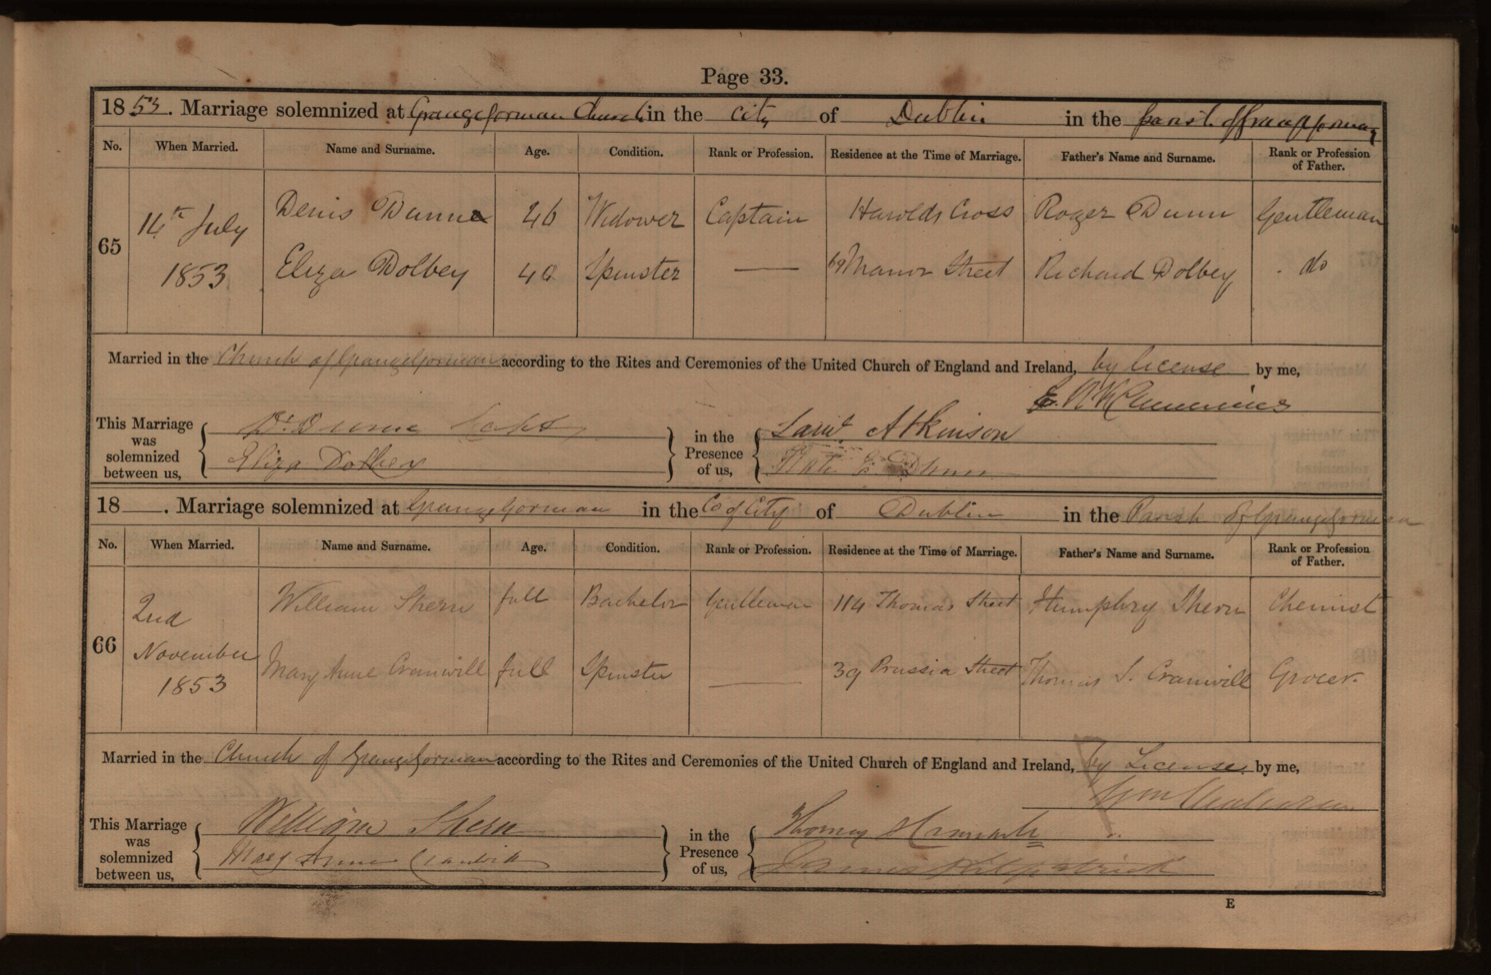 Page 33.
1853. Marriage solemnized at Grangegorman Church in the City of Dublin in the parish of Grangegorman
No. When Married. Name and Surname. Age. Condition. Rank or Profession. Residence at the Time of Marriage. Father's Name and Surname. Rank or Profession of Father.
65 14th July 1853 Denis Dunne 46 Widower Captain Harolds Cross Roger Dunn Gentleman
Eliza Dolbey 40 Spinster — Manor Street Richard Dolbey do
Married in the Church of Grangegorman according to the Rites and Ceremonies of the United Church of England and Ireland, by license by me,
This Marriage was solemnized between us, Ds. Dunne Capt
Eliza Dolbey
in the Presence of us, Atkinson
Kate Dunn
18 . Marriage solemnized at Grangegorman in the Co of City of Dublin in the Parish of Grangegorman
No. When Married. Name and Surname. Age. Condition. Rank or Profession. Residence at the Time of Marriage. Father's Name and Surname. Rank or Profession of Father.
66 2nd November 1853 William Shern full Bachelor Gentleman 114 Thomas Street Humphry Shern Chemist
Mary Anne Cranwill full Spinster — 39 Prussia Street Thomas S. Cranwill Grocer.
Married in the Church of Grangegorman according to the Rites and Ceremonies of the United Church of England and Ireland, by License by me,
This Marriage was solemnized between us, William Shern
Mary Anne Cranwill
in the Presence of us, Thomas
James Kilpatrick
E